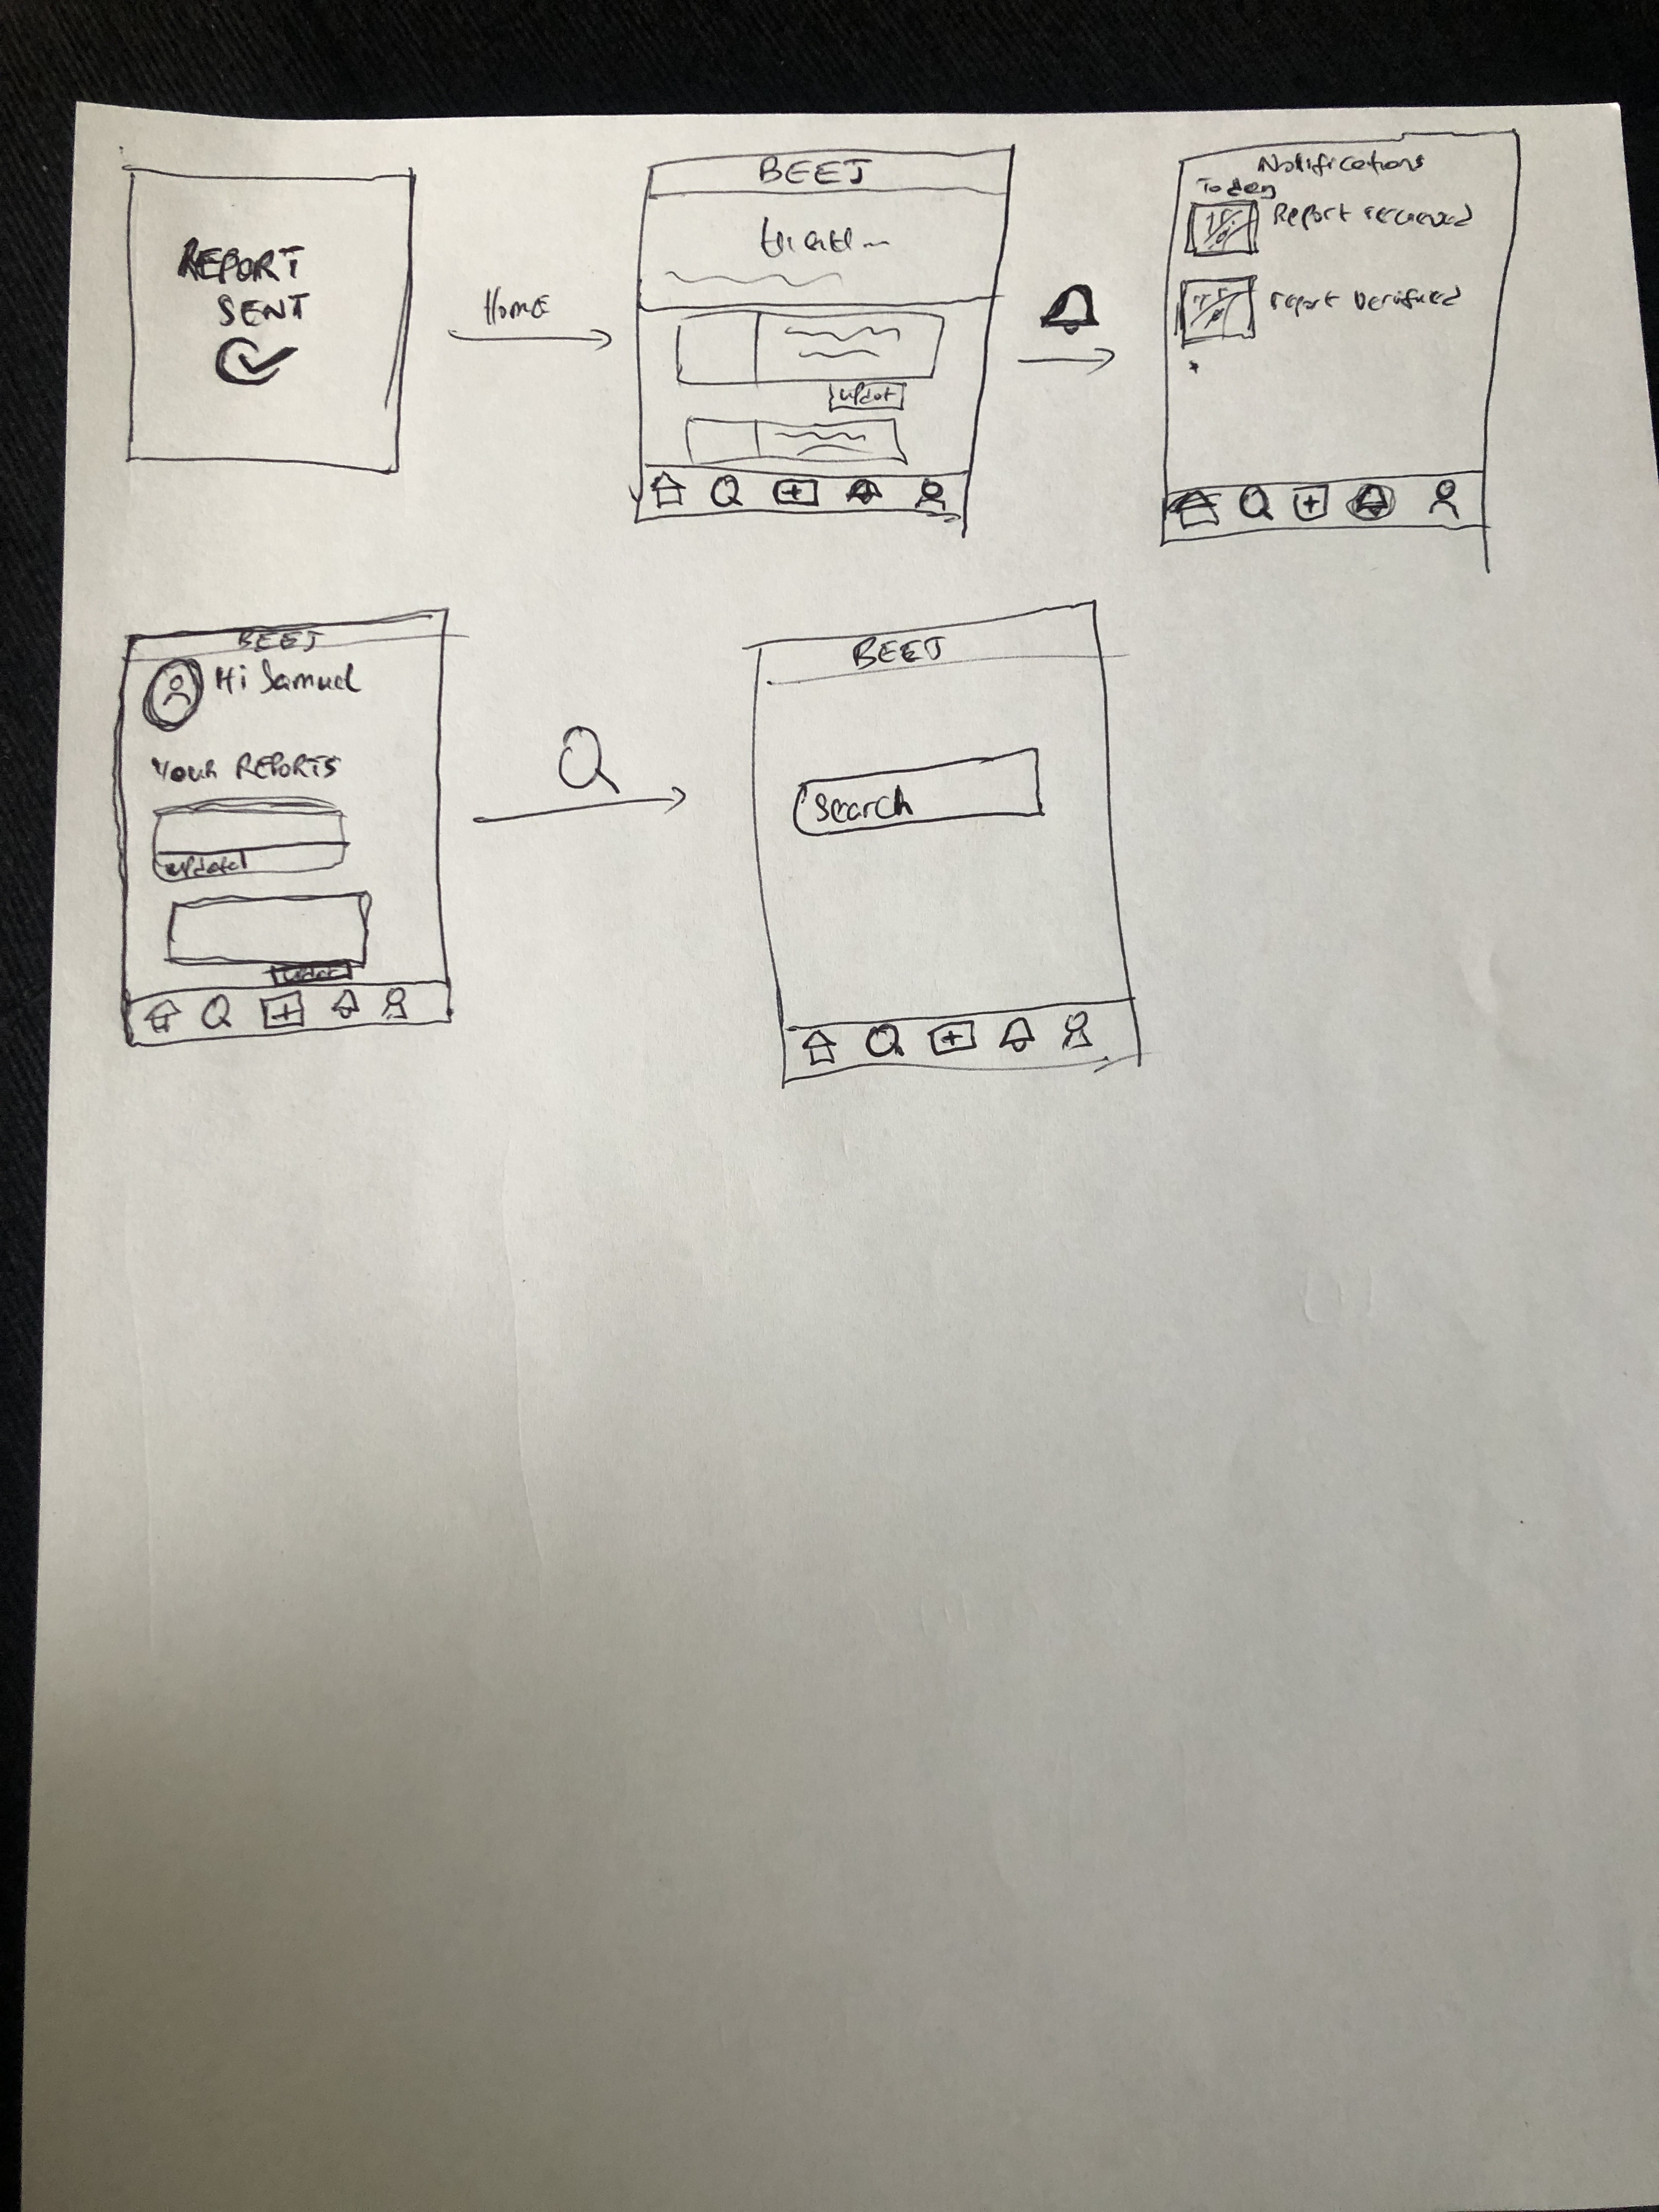 REPORT
SENT
Home
BEEJ
update
Notifications
Today
Report received
report verified
BEEJ
Hi Samuel
Your REPORTS
update
update
BEEJ
Search